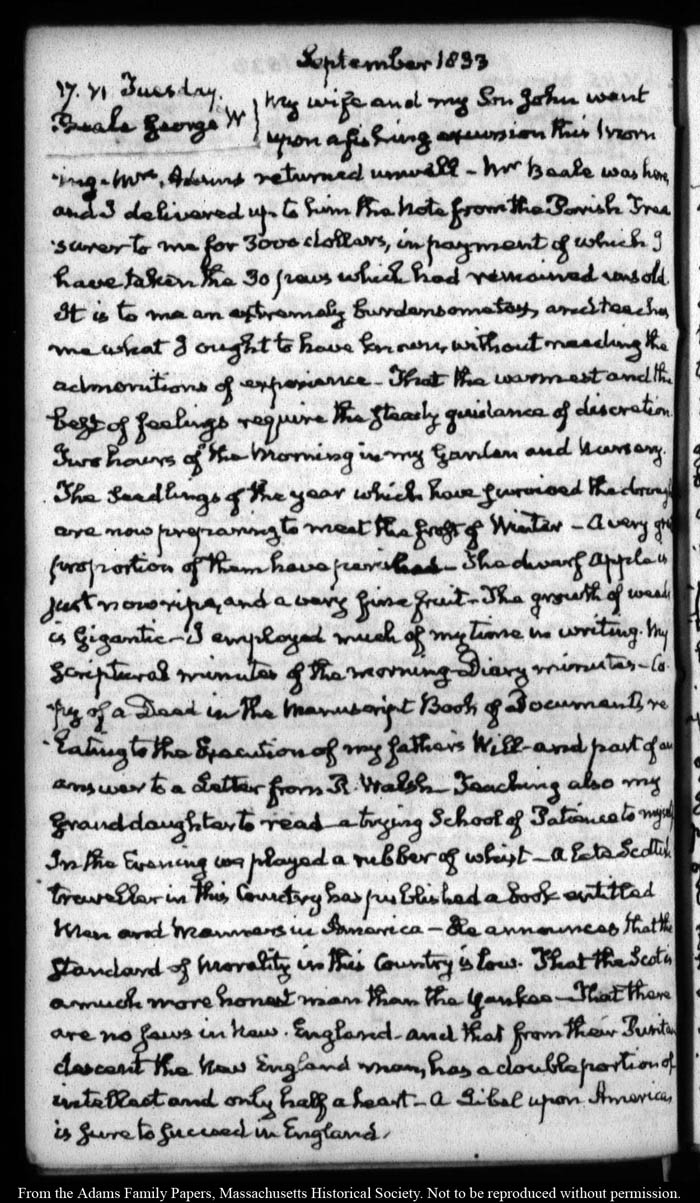 September 1833
17. VI Tuesday.
Beale George W
My wife and my Son John went
upon a fishing excursion this Morn
ing. Mrs. Adams returned unwell – Mr Beale was here,
and I delivered up to him the Note from the Parish Trea
surer to me for 3000 dollars, in payment of which I
have taken the 30 pews which had remained unsold
It is to me an extremely burdensome and teaches
me what I ought to have known, without needing the
admonitions of experience – That the warmest and the
best of feelings require the steady guidance of discretion
Two hours of the Morning in my Garden and Nursery.
The Seedlings of the year which have survived the
are now preparing to meet the frost of Winter – A very
proportion of them have perished – The dwarf Apple is
just now ripe, and a very fine fruit – The growth of weeds
is Gigantic – I employed much of my time in writing. My
Scriptural minutes of the morning – Diary minutes – Co
py of a Deed in the Manuscript Book of Documents re
lating to the Execution of my father's Will – and part of an
answer to a Letter from R. Walsh – Teaching also my
Granddaughter to read – a trying School of Patience to myself
In the Evening we played a rubber of whist – a late Scottish
traveller in this Country has published a book entitled
Men and Manners in America – He announces that the
Standard of Morality in this Country is low. That the Scot is
a much more honest man than the Yankee – That there
are no Jews in New England – and that from their Puritan
descent the New England man, has a double portion of
intellect and only half a heart – A Libel upon America
is sure to succeed in England.
From the Adams Family Papers, Massachusetts Historical Society. Not to be reproduced without permission.